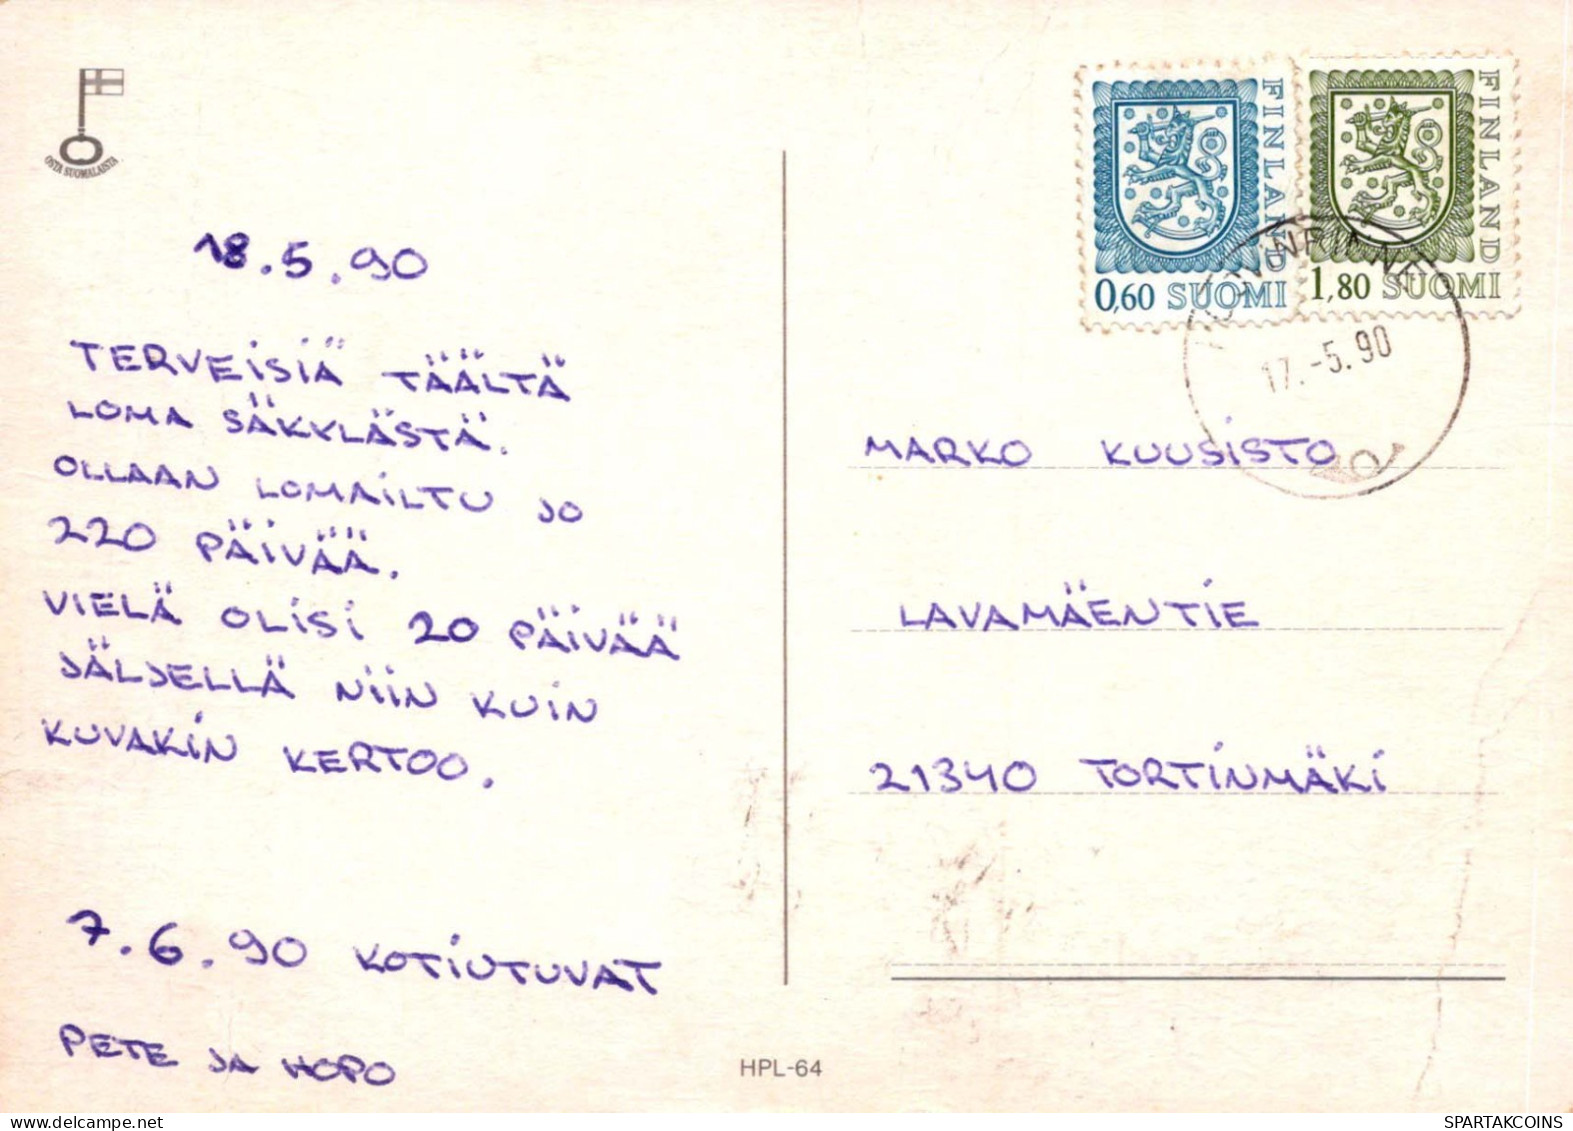 OSTA SUOMALAISTA
18.5.90
TERVEISIÄ TÄÄLTÄ
LOMA SÄKYLÄSTÄ.
OLLAAN LOMAILTU JO
220 PÄIVÄÄ.
VIELÄ OLISI 20 PÄIVÄÄ
JÄLJELLÄ NIIN KUIN
KUVAKIN KERTOO.
7.6.90 KOTIUTUVAT
PETE JA HOPO
HPL-64
FINLAND
0,60 SUOMI
FINLAND
1,80 SUOMI
17.-5.90
MARKO KUUSISTO
LAVAMÄENTIE
21340 TORTINMÄKI
SPARTAKCOINS